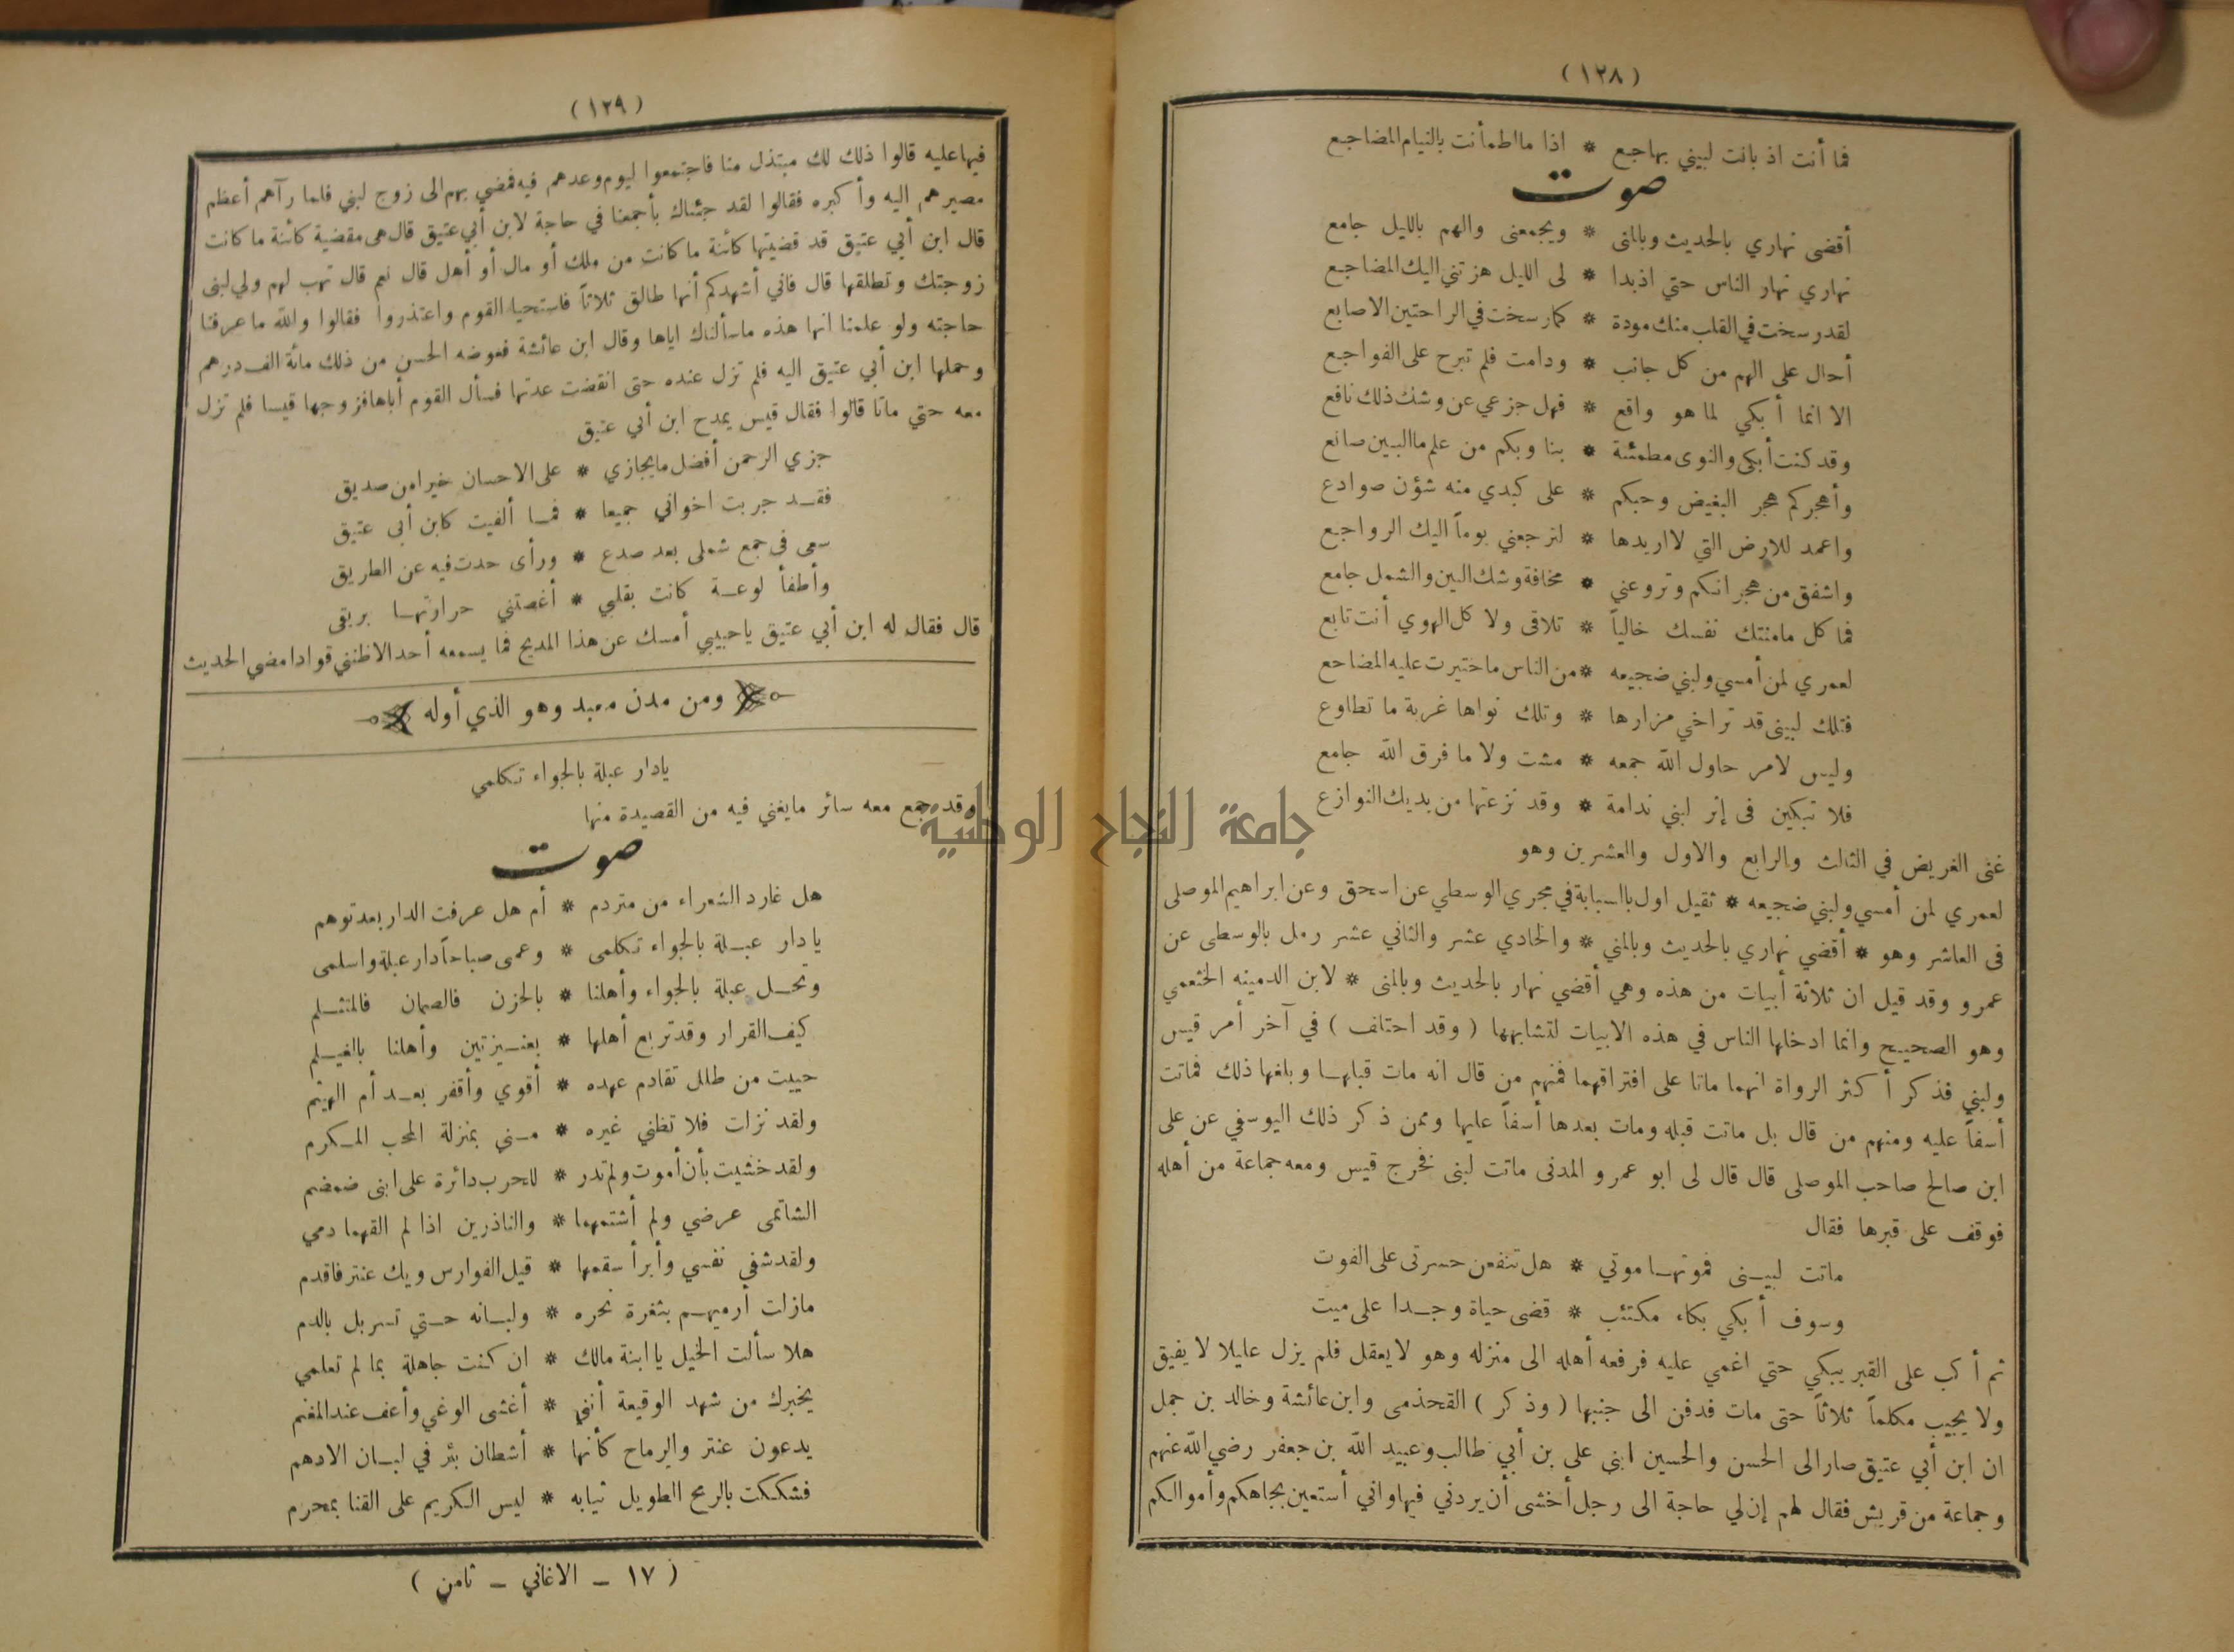 (١٢٨)
فما أنت اذ بانت لبيني بهاجع * اذا ما اطمأنت بالنيام المضاجع
صوت
أقضى نهاري بالحديث وبالمنى * ويجمعنى والهم بالليل جامع
نهاري نهار الناس حتي اذبدا * لى الليل هزتني اليك المضاجع
لقد رسخت في القلب منك مودة * كما رسخت في الراحتين الاصابع
أحال على الهم من كل جانب * ودامت فلم تبرح على الفواجع
الا انما أبكي لما هو واقع * فهل جزعي عن وشك ذلك نافع
وقد كنت أبكى والنوى مطمئنة * بنا وبكم من علم ما البين صانع
وأهجركم هجر البغيض وحبكم * على كبدي منه شؤن صوادع
واعمد للارض التي لا اريدها * لترجعني يوماً اليك الرواجع
واشفق من هجرانكم وتروعني * مخافة وشك البين والشمل جامع
فما كل مامنتك نفسك خالياً * تلاقى ولا كل الهوي أنت تابع
لعمري لمن أمسي ولبني ضجيعه * من الناس ماختيرت عليه المضاجع
فتلك لبينى قد تراخي مزارها * وتلك نواها غربة ما تطاوع
وليس لامر حاول الله جمعه * مشت ولا ما فرق الله جامع
فلا تبكين فى إثر لبني ندامة * وقد نزعتها من يديك النوازع
غنى الغريض في الثالث والرابع والاول والعشرين وهو
لعمري لمن أمسي ولبني ضجيعه * ثقيل اول بالسبابة في مجري الوسطي عن اسحق وعن ابراهيم الموصلى
فى العاشر وهو * أقضي نهاري بالحديث وبالمني * والحادي عشر والثاني عشر رمل بالوسطى عن
عمرو وقد قيل ان ثلاثة أبيات من هذه وهي أقضي نهار بالحديث وبالمنى * لابن الدمينه الخثعمي
وهو الصحيح وانما ادخلها الناس في هذه الابيات لتشابهها ( وقد اختلف ) في آخر أمر قيس
ولبني فذكر أكثر الرواة انهما ماتا على افتراقهما فمنهم من قال انه مات قبلهـا وبلغها ذلك فماتت
أسفاً عليه ومنهم من قال بل ماتت قبله ومات بعدها أسفاً عليها وممن ذكر ذلك اليوسفي عن على
ابن صالح صاحب الموصلى قال قال لى ابو عمرو المدنى ماتت لبنى فخرج قيس ومعه جماعة من أهله
فوقف على قبرها فقال
ماتت لبيـنى فموتهـا موتي * هل تنفعن حسرتى على الفوت
وسوف أبكي بكاء مكتئب * قضى حياة وجـدا على ميت
ثم أكب على القبر يبكي حتي اغمي عليه فرفعه أهله الى منزله وهو لايعقل فلم يزل عليلا لا يفيق
ولا يجيب مكلماً ثلاثاً حتى مات فدفن الى جنبها ( وذكر ) القحذمى وابن عائشة وخالد بن جمل
ان ابن أبي عتيق صار الى الحسن والحسين ابني على بن أبي طالب وعبيد الله بن جعفر رضي الله عنهم
وجماعة من قريش فقال لهم إن لي حاجة الى رجل أخشى أن يردني فيها واني أستعين بجاهكم وأموالكم
(١٢٩)
فيها عليه قالوا ذلك لك مبتذل منا فاجتمعوا ليوم وعدهم فيه فمضي بهم الى زوج لبني فلما رآهم أعظم
مصيرهم اليه وأكبره فقالوا لقد جئناك بأجمعنا في حاجة لابن أبي عتيق قال هى مقضية كائنة ما كانت
قال ابن أبي عتيق قد قضيتها كائنة ما كانت من ملك أو مال أو أهل قال نعم قال تهب لهم ولي لبنى
زوجتك وتطلقها قال فاني أشهدكم أنها طالق ثلاثاً فاستحيا القوم واعتذروا فقالوا والله ماعرفنا
حاجته ولو علمنا انها هذه ماسألناك اياها وقال ابن عائشة فعوضه الحسن من ذلك مائة الف درهم
وحملها ابن أبي عتيق اليه فلم تزل عنده حتى انقضت عدتها فسأل القوم أباها فزوجها قيسا فلم تزل
معه حتي ماتا قالوا فقال قيس يمدح ابن أبي عتيق
جزي الرحمن أفضل مايجازي * على الاحسان خيرا من صديق
فقـد جربت اخواني جميعا * فمـا ألفيت كابن أبى عتيق
سعى في جمع شملى بعد صدع * ورأى حدت فيه عن الطريق
وأطفأ لوعـة كانت بقلبي * أغصتني حرارتهـا بريقى
قال فقال له ابن أبي عتيق ياحبيبي أمسك عن هذا المديح فما يسمعه أحد الاظنني قوادا مضى الحديث
ومن مدن معبد وهو الذي أوله
يادار عبلة بالجواء تكلمي
وقد جمع معه سائر مايغني فيه من القصيدة منها
صوت
هل غادر الشعراء من متردم * أم هل عرفت الدار بعد توهم
يادار عبـلة بالجواء تكلمى * وعمى صباحاً دار عبلة واسلمى
وتحـل عبلة بالجواء وأهلنا * بالحزن فالصمان فالمتثـلم
كيف القرار وقد تربع أهلها * بعنـيزتين وأهلنا بالغيـلم
حييت من طلل تقادم عهده * أقوي وأقفر بعـد أم الهيثم
ولقد نزلت فلا تظني غيره * مـني بمنزلة المحب المـكرم
ولقد خشيت بأن أموت ولم تدر * للحرب دائرة على ابنى ضمضم
الشاتمى عرضي ولم أشتمهما * والناذرين اذا لم القهما دمي
ولقد شفي نفسي وأبرأ سقمها * قيل الفوارس ويك عنتر فاقدم
مازلت أرميهـم بثغرة نحره * ولبـانه حـتي تسربل بالدم
هلا سألت الخيل ياابنة مالك * ان كنت جاهلة بما لم تعلمي
يخبرك من شهد الوقيعة أنني * أغشى الوغي وأعف عند المغنم
يدعون عنتر والرماح كأنها * أشطان بئر في لبـان الادهم
فشككت بالرمح الطويل ثيابه * ليس الكريم على القنا بمحرم
( ١٧ ــ الاغاني ــ ثامن )
جامعة النجاح الوطنية